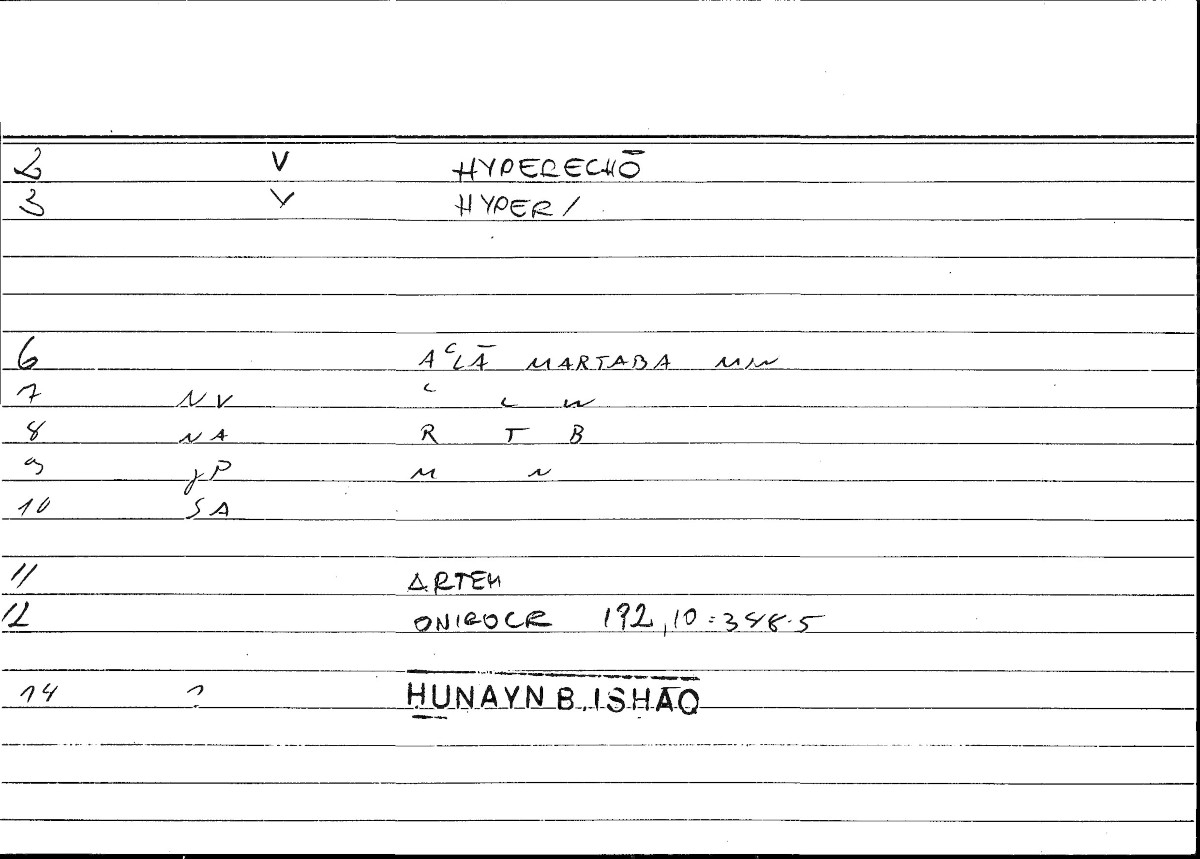 2 V HYPERECHŌ
3 V HYPER/
6 AʿLĀ MARTABA MIN
7 NV ʿ L W
8 NA R T B
9 JP M N
10 SA
11 ARTEM
12 ONIROCR 192,10 = 348.5
14 ? ḤUNAYN B. ISḤĀQ